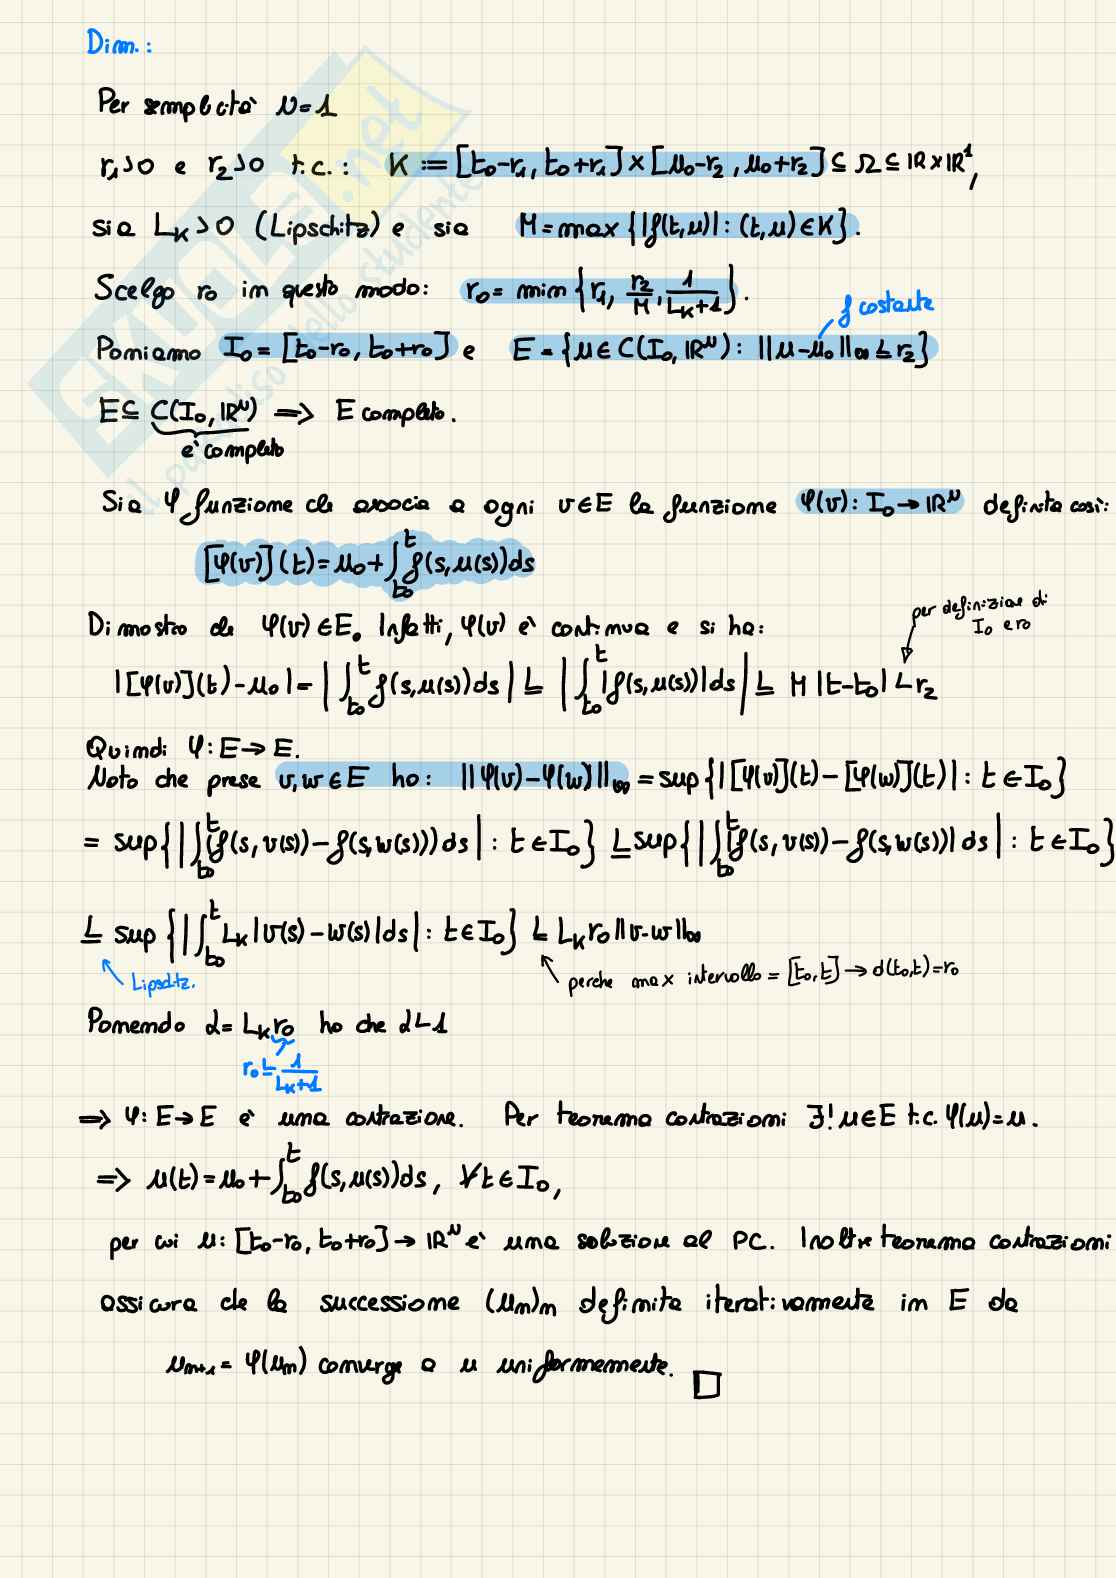 Dim.:
Per semplicità N=1
r₁>0 e r₂>0 t.c.: K := [t₀-r₁, t₀+r₁] × [u₀-r₂, u₀+r₂] ⊆ Ω ⊆ ℝ×ℝ¹,
sia L_K>0 (Lipschitz) e sia M = max{|f(t,u)| : (t,u) ∈ K}.
Scelgo r₀ in questo modo: r₀ = min{r₁, r₂/M, 1/(L_K+1)}.
f costante
Poniamo I₀ = [t₀-r₀, t₀+r₀] e E = {u ∈ C(I₀, ℝᴺ) : ||u-u₀||∞ ≤ r₂}
E ⊆ C(I₀, ℝᴺ) ⟹ E completo.
è completo
Sia φ funzione che associa a ogni v∈E la funzione φ(v): I₀ → ℝᴺ definita così:
[φ(v)](t) = u₀ + ∫_{t₀}^{t} f(s, u(s))ds
per definizione di
I₀ e r₀
Dimostro che φ(v) ∈ E. Infatti, φ(v) è continua e si ha:
|[φ(v)](t) - u₀| = |∫_{t₀}^{t} f(s, u(s))ds| ≤ |∫_{t₀}^{t} |f(s, u(s))|ds| ≤ M |t-t₀| < r₂
Quindi φ: E → E.
Noto che prese v, w ∈ E ho: ||φ(v) - φ(w)||∞ = sup{|[φ(v)](t) - [φ(w)](t)| : t ∈ I₀}
= sup{|∫_{t₀}^{t} (f(s, v(s)) - f(s, w(s)))ds| : t ∈ I₀} ≤ sup{|∫_{t₀}^{t} |f(s, v(s)) - f(s, w(s))|ds| : t ∈ I₀}
≤ sup{|∫_{t₀}^{t} L_K |v(s) - w(s)|ds| : t ∈ I₀} ≤ L_K r₀ ||v-w||∞
Lipschtz.
perche max intervallo = [t₀, t] → d(t₀,t) = r₀
Ponendo α = L_K r₀ ho che α < 1
r₀ ≤ 1/(L_K+1)
⟹ φ: E → E è una contrazione. Per teorema contrazioni ∃! u ∈ E t.c. φ(u) = u.
⟹ u(t) = u₀ + ∫_{t₀}^{t} f(s, u(s))ds, ∀t ∈ I₀,
per cui u: [t₀-r₀, t₀+r₀] → ℝᴺ è una soluzione al PC. Inoltre teorema contrazioni
assicura che la successione (uₘ)ₘ definita iterativamente in E da
uₘ₊₁ = φ(uₘ) converge a u uniformemente. □